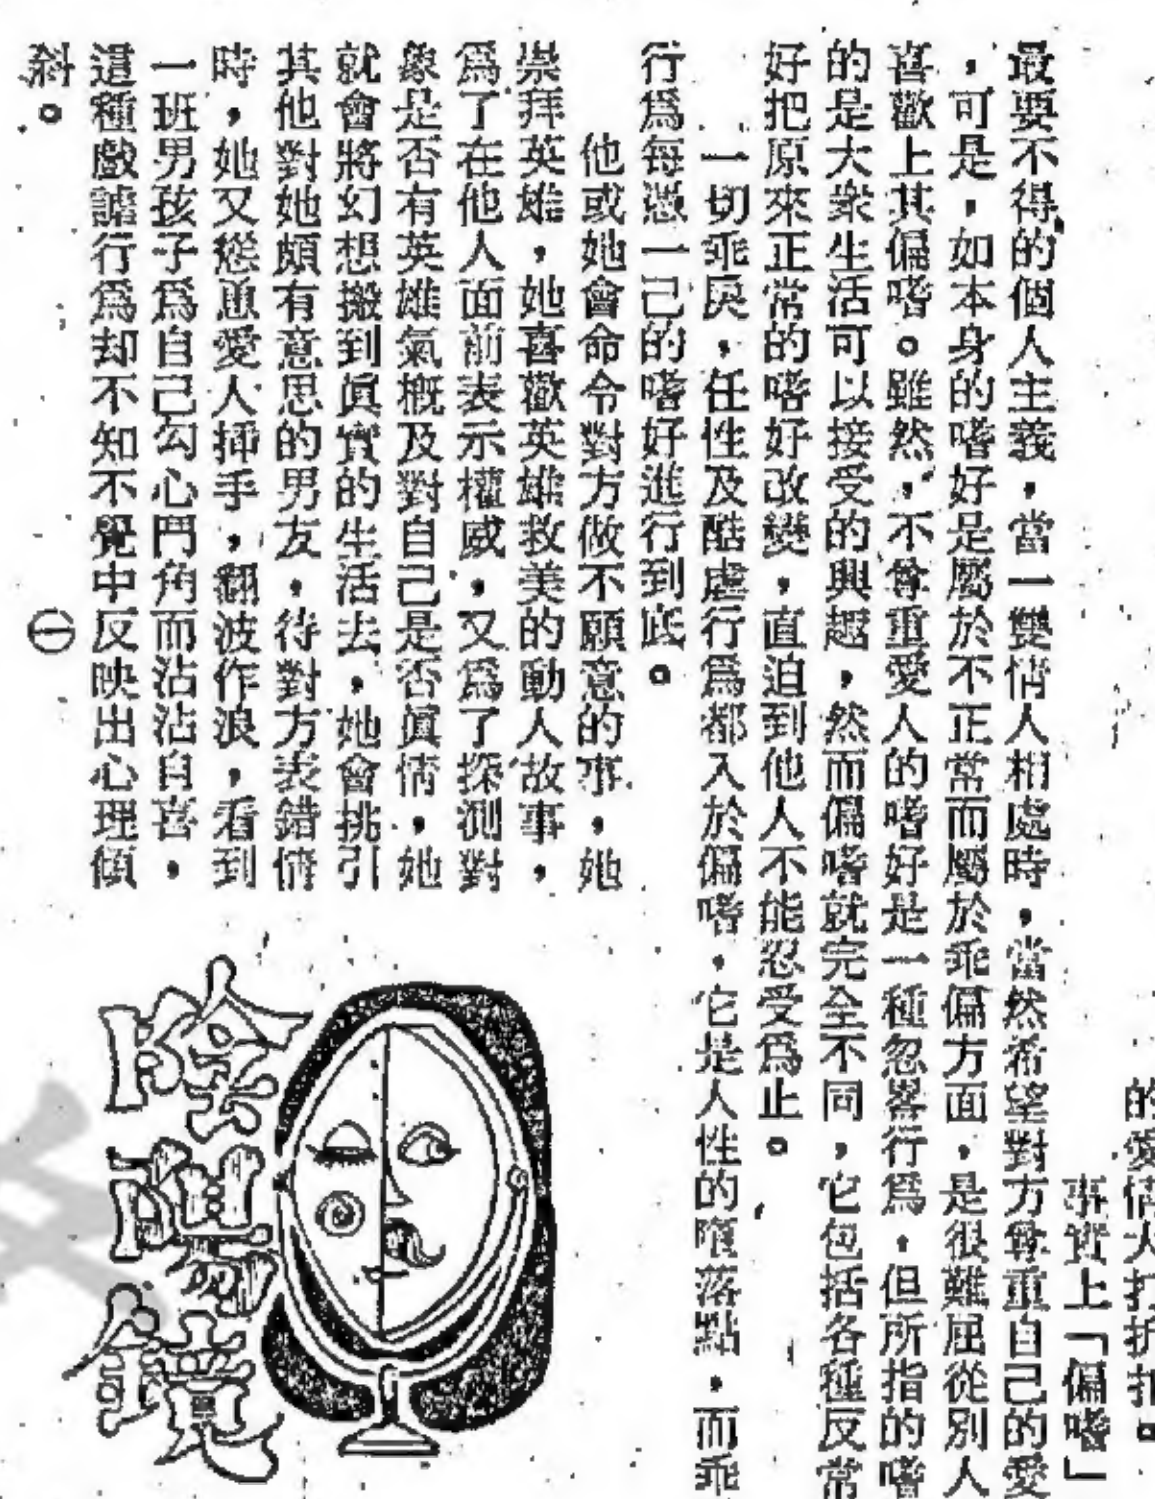 的愛情大打折扣。
事實上「偏嗜」
最要不得的個人主義，當一雙情人相處時，當然希望對方尊重自己的愛
，可是，如本身的嗜好是屬於不正常而屬於乖偏方面，是很難屈從別人
喜歡上其偏嗜。雖然，不尊重愛人的嗜好是一種忽畧行爲，但所指的嗜
的是大衆生活可以接受的興趣，然而偏嗜就完全不同，它包括各種反常
好把原來正常的嗜好改變，直迫到他人不能忍受爲止。
一切乖戾，任性及酷虐行爲都入於偏嗜，它是人性的墮落點，而乖
行爲每憑一己的嗜好進行到底。
他或她會命令對方做不願意的事，她
崇拜英雄，她喜歡英雄救美的動人故事，
爲了在他人面前表示權威，又爲了探測對
象是否有英雄氣概及對自己是否眞情，她
就會將幻想搬到眞實的生活去，她會挑引
其他對她頗有意思的男友，待對方表錯情
時，她又慫恿愛人插手，翻波作浪，看到
一班男孩子爲自己勾心鬥角而沾沾自喜，
這種戲謔行爲却不知不覺中反映出心理傾
斜。 ㊀
陰陽鏡